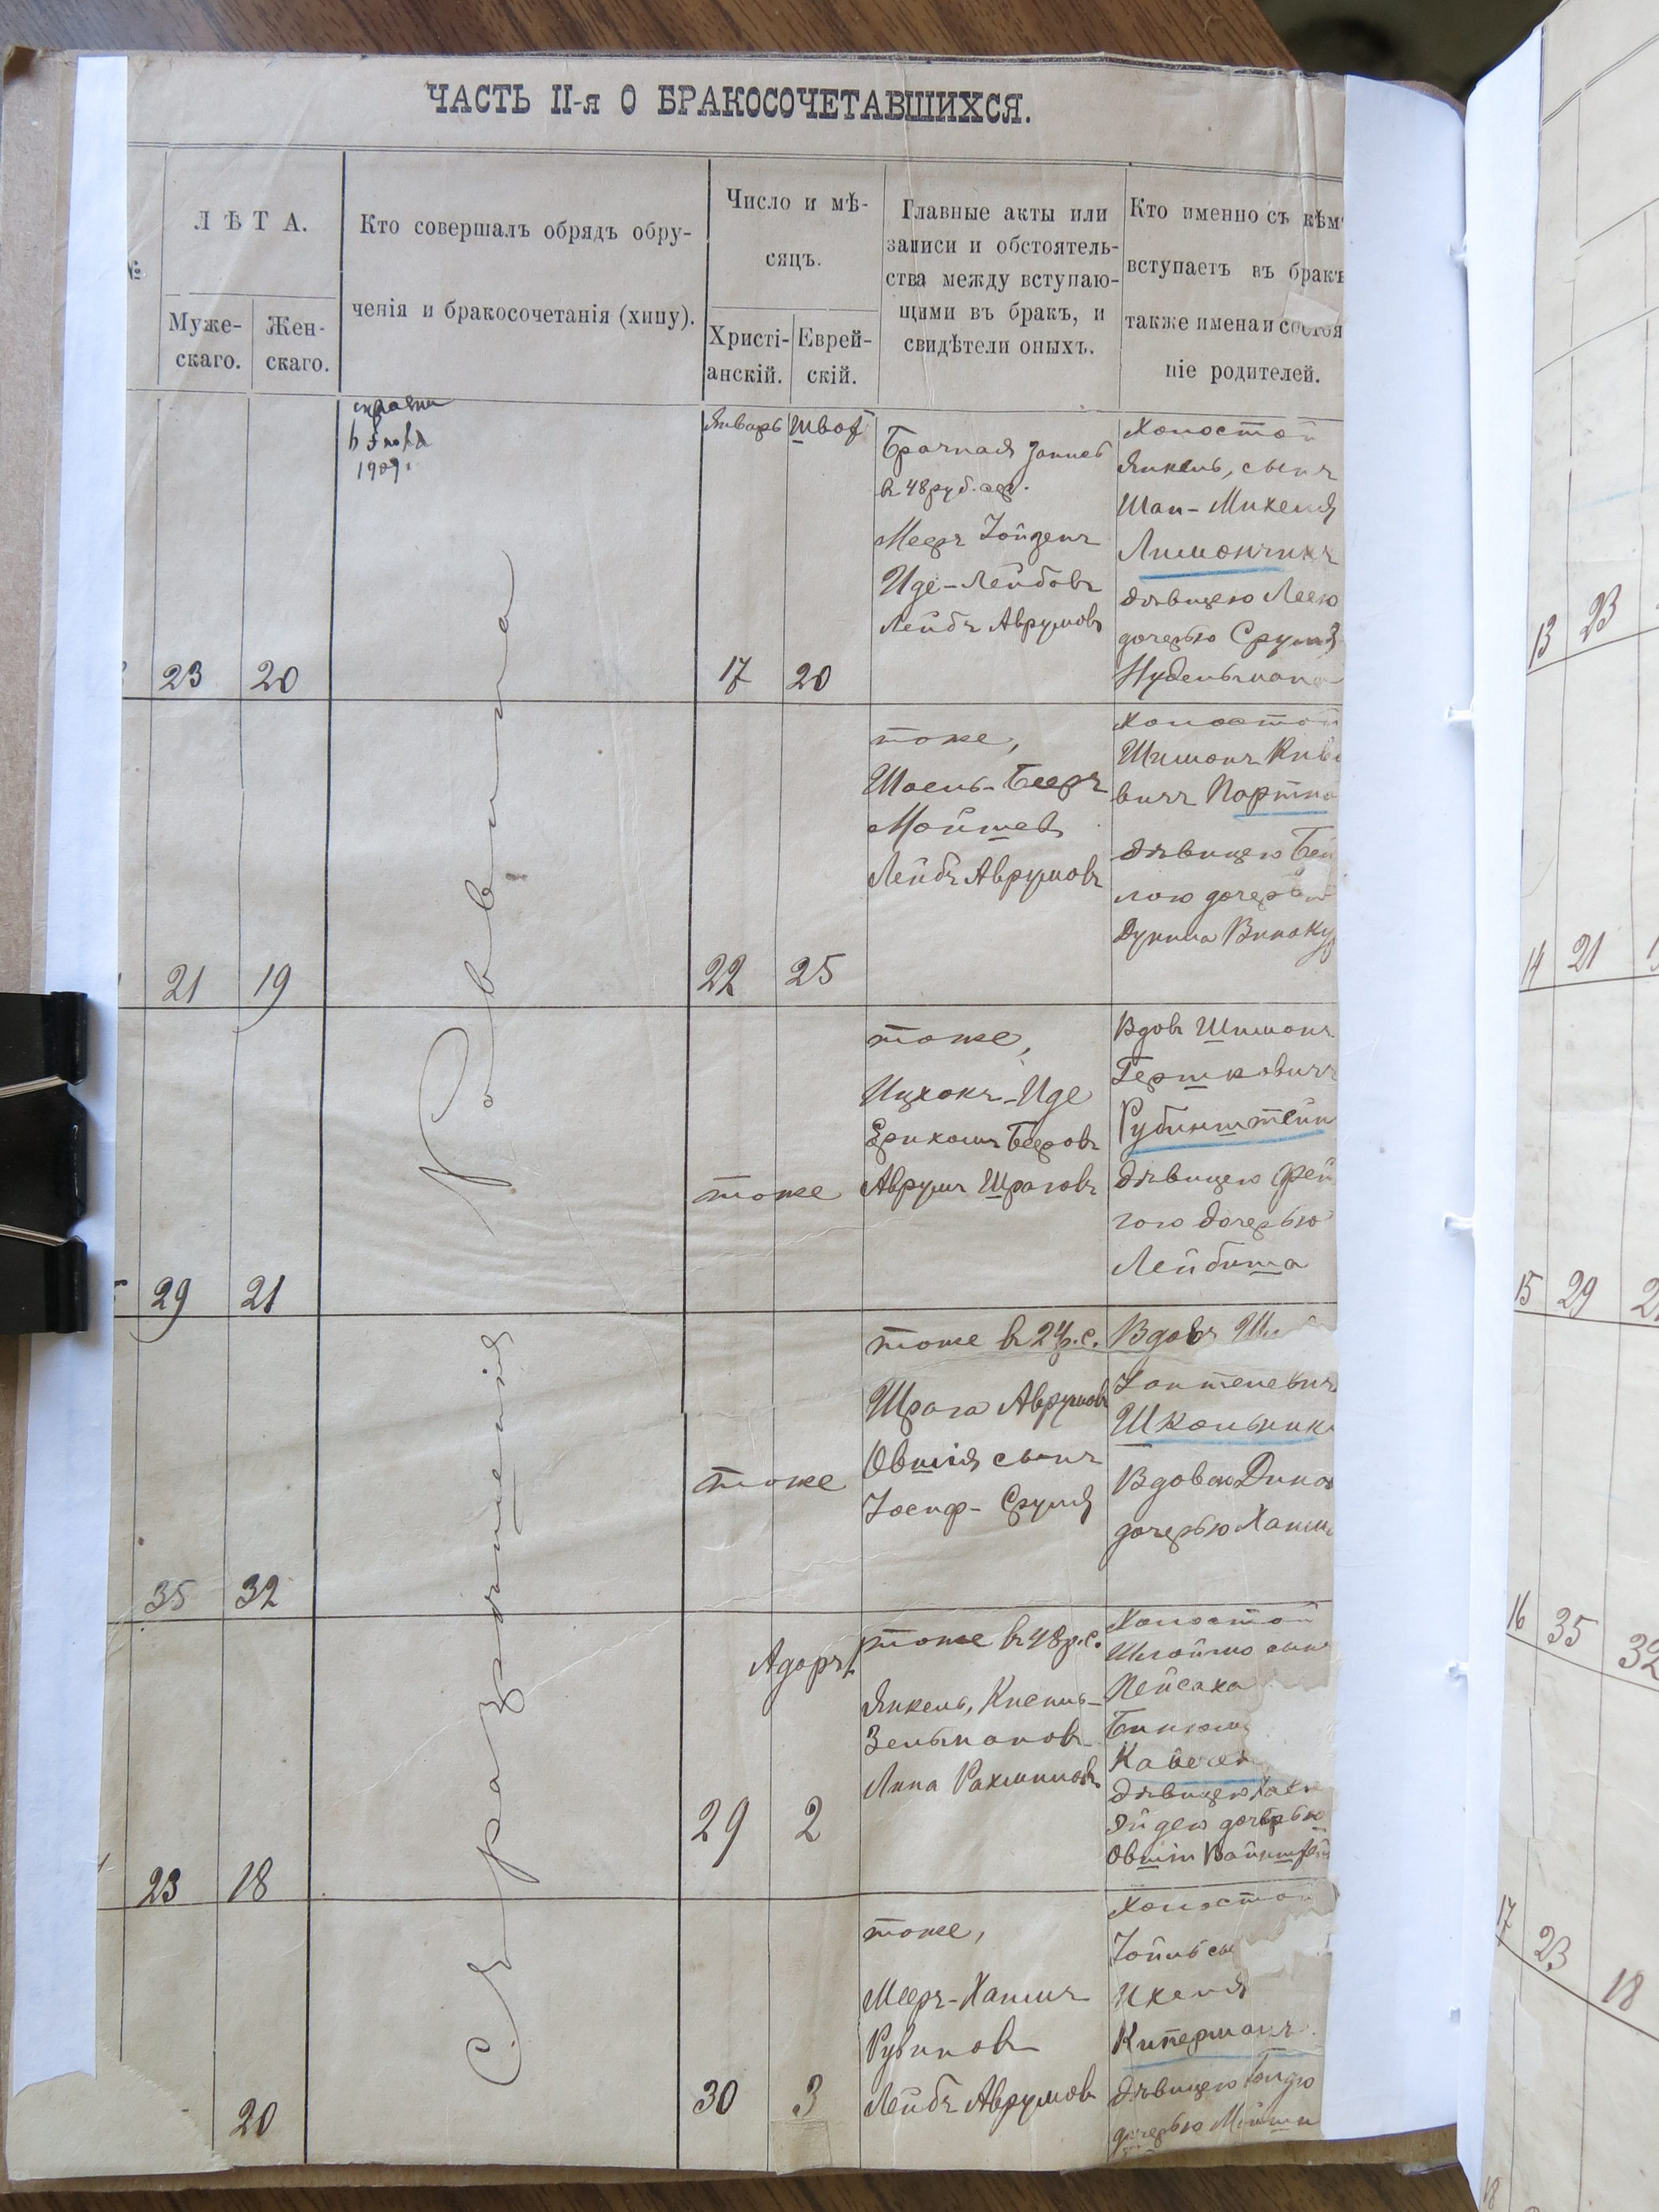 ЧАСТЬ II-я О БРАКОСОЧЕТАВШИХСЯ.
№
ЛѢТА.
Муже-
скаго.
Жен-
скаго.
Кто совершалъ обрядъ обру-
ченія и бракосочетанія (хипу).
Число и мѣ-
сяцъ.
Христі-
анскій.
Еврей-
скій.
Главные акты или
записи и обстоятель-
ства между вступаю-
щими въ бракъ, и
свидѣтели оныхъ.
Кто именно съ кѣм
вступаетъ въ бракъ
также имена и состоя
ніе родителей.
1909
Январь
Швот
23
20
17
20
Брачная запись
в 48 руб. сер.
Меер Зойденъ
Иде-Лейбовъ
Лейбъ Аврумовъ
Холостой
Янкель, сынъ
Шаи-Михеля
Лимончикъ
дѣвицею Леею
дочерью Сруля
Нудельмана
21
19
22
25
тоже,
Шоель-Бееръ
Мойшев
Лейбъ Аврумовъ
Холостой
Шимонъ Киве
вичъ Портно
дѣвицею Бей
лою дочерью
Дункиа Винокур
29
21
тоже
тоже,
Ицхокъ-Иде
Беровъ
Аврумъ Шраговъ
Вдовъ Шимонъ
Гершковичъ
Рубинштейн
дѣвицею Фей
гою дочерью
Лейбиша
35
32
тоже
тоже в 24 р.с.
Шрага Аврумовъ
Овшія сынъ
Іосиф-Сруля
Вдовъ
Школьник
Вдовою Диною
дочерью Хаима
23
18
Адоръ
29
2
тоже в 48 р.с.
Янкель, Кисиль-
Зельмановъ
Липа Рахмиловъ
Холостой
Шлоймо сынъ
Пейсаха
дѣвицею
Эйдею дочерью
Овшіи Вайнштейн
20
30
3
тоже,
Мееръ-Хаимъ
Рувиновъ
Лейбъ Аврумов
Холостой
Ихеля
Киперманъ
дѣвицею Голдю
дочерью Мойши
Сѣ разрѣшенія Раввина
13
23
14
21
15
29
16
35
32
17
23
18
18